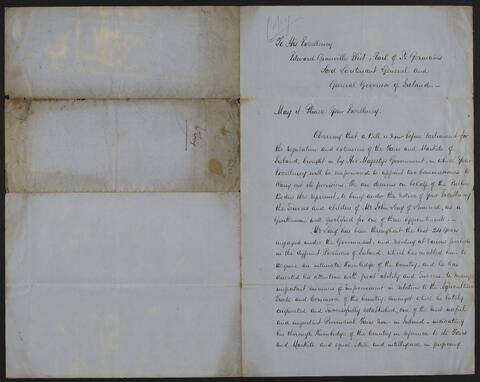 Copy
To His Excellency
Edward Granville Eliot, Earl of St Germains
Lord Lieutenant General and
General Governor of Ireland.
May it Please Your Excellency,
Observing that a Bill is now before Parliament for
the regulation and extension of the Fairs and Markets of
Ireland, brought in by Her Majesty's Government, in which Your
Excellency will be empowered to appoint two Commissioners to
carry out its provisions, We are desirous on behalf of the Public
Bodies we represent, to bring under the notice of Your Excellency
the services and abilities of Mr John Long of Limerick, as a
Gentleman well qualified for one of these appointments.
Mr Long has been throughout the last 24 years
engaged under the Government, and residing at various periods
in the different Provinces of Ireland, which has enabled him to
acquire an intimate knowledge of the Country, and he has
devoted his attention with great ability and success to many
important measures of improvement in relation to the Agriculture
Trade and Commerce of the Country, amongst which he lately
originated and successfully established, one of the most useful
and important Provincial Fairs now in Ireland, indicating
his thorough knowledge of the Country in reference to its Fairs
and Markets and equal skill and intelligence in preparing